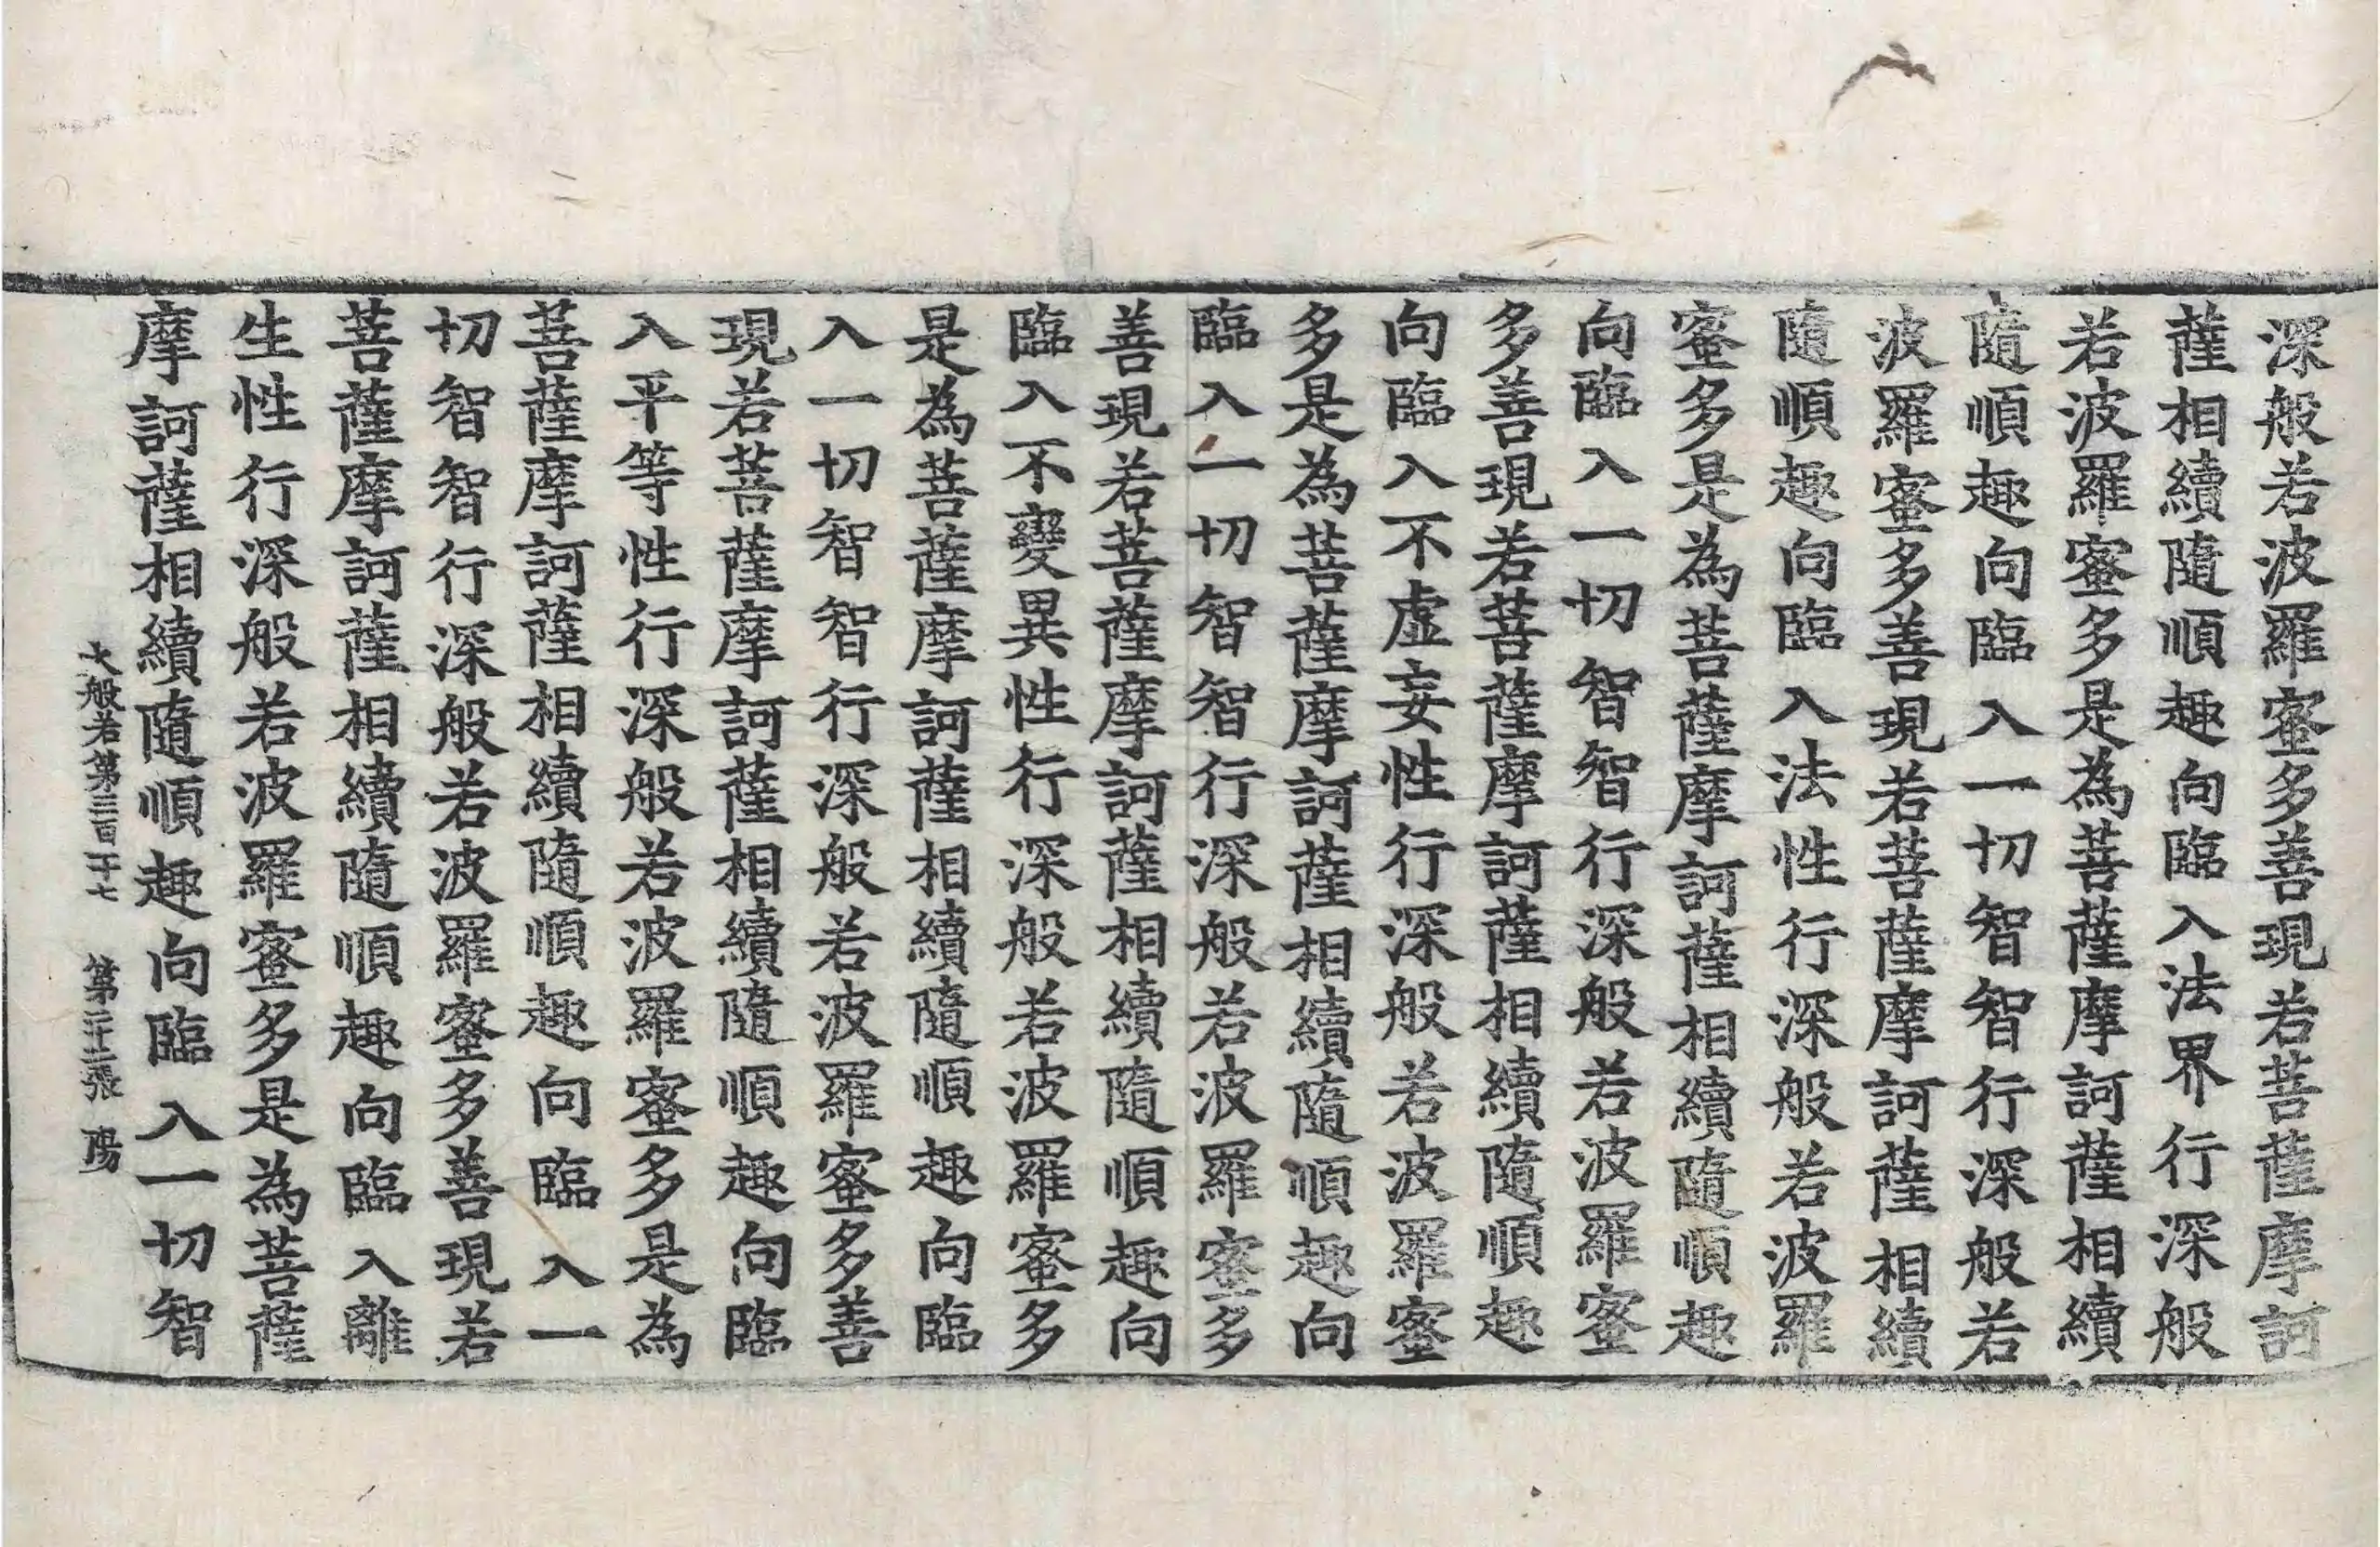 深般若波羅蜜多善現若菩薩摩訶
薩相續隨順趣向臨入法界行深般
若波羅蜜多是為菩薩摩訶薩相續
隨順趣向臨入一切智智行深般若
波羅蜜多善現若菩薩摩訶薩相續
隨順趣向臨入法性行深般若波羅
蜜多是為菩薩摩訶薩相續隨順趣
向臨入一切智智行深般若波羅蜜
多善現若菩薩摩訶薩相續隨順趣
向臨入不虛妄性行深般若波羅蜜
多是為菩薩摩訶薩相續隨順趣向
臨入一切智智行深般若波羅蜜多
善現若菩薩摩訶薩相續隨順趣向
臨入不變異性行深般若波羅蜜多
是為菩薩摩訶薩相續隨順趣向臨
入一切智智行深般若波羅蜜多善
現若菩薩摩訶薩相續隨順趣向臨
入平等性行深般若波羅蜜多是為
菩薩摩訶薩相續隨順趣向臨入一
切智智行深般若波羅蜜多善現若
菩薩摩訶薩相續隨順趣向臨入離
生性行深般若波羅蜜多是為菩薩
摩訶薩相續隨順趣向臨入一切智
大般若第三百一十七 第二十二張 陽